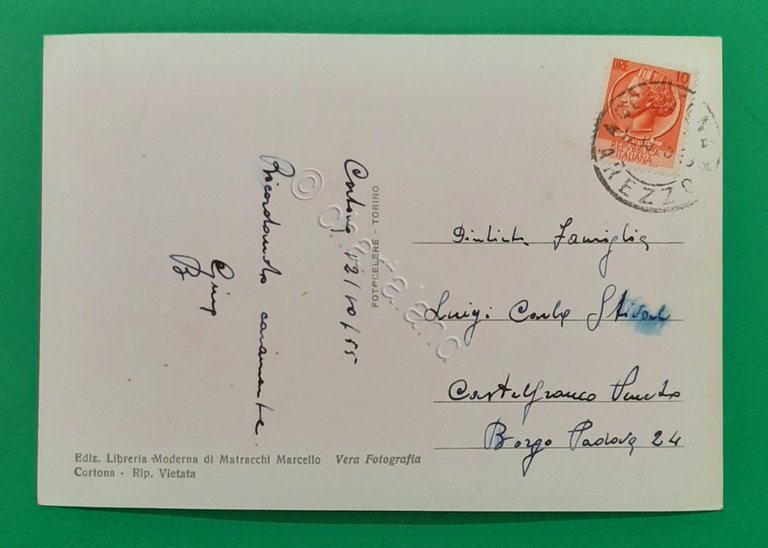 Cortona 12/10/55
Ricordando caramente
Gina
B
FOTOCELERE - TORINO
Ediz. Libreria Moderna di Matracchi Marcello Vera Fotografia
Cortona - Rip. Vietata
LIRE 10
REPVBBLICA
ITALIANA
AREZZO
Famiglia
Luigi Carlo
Castelfranco Veneto
Borgo Padova 24
© cartaiano